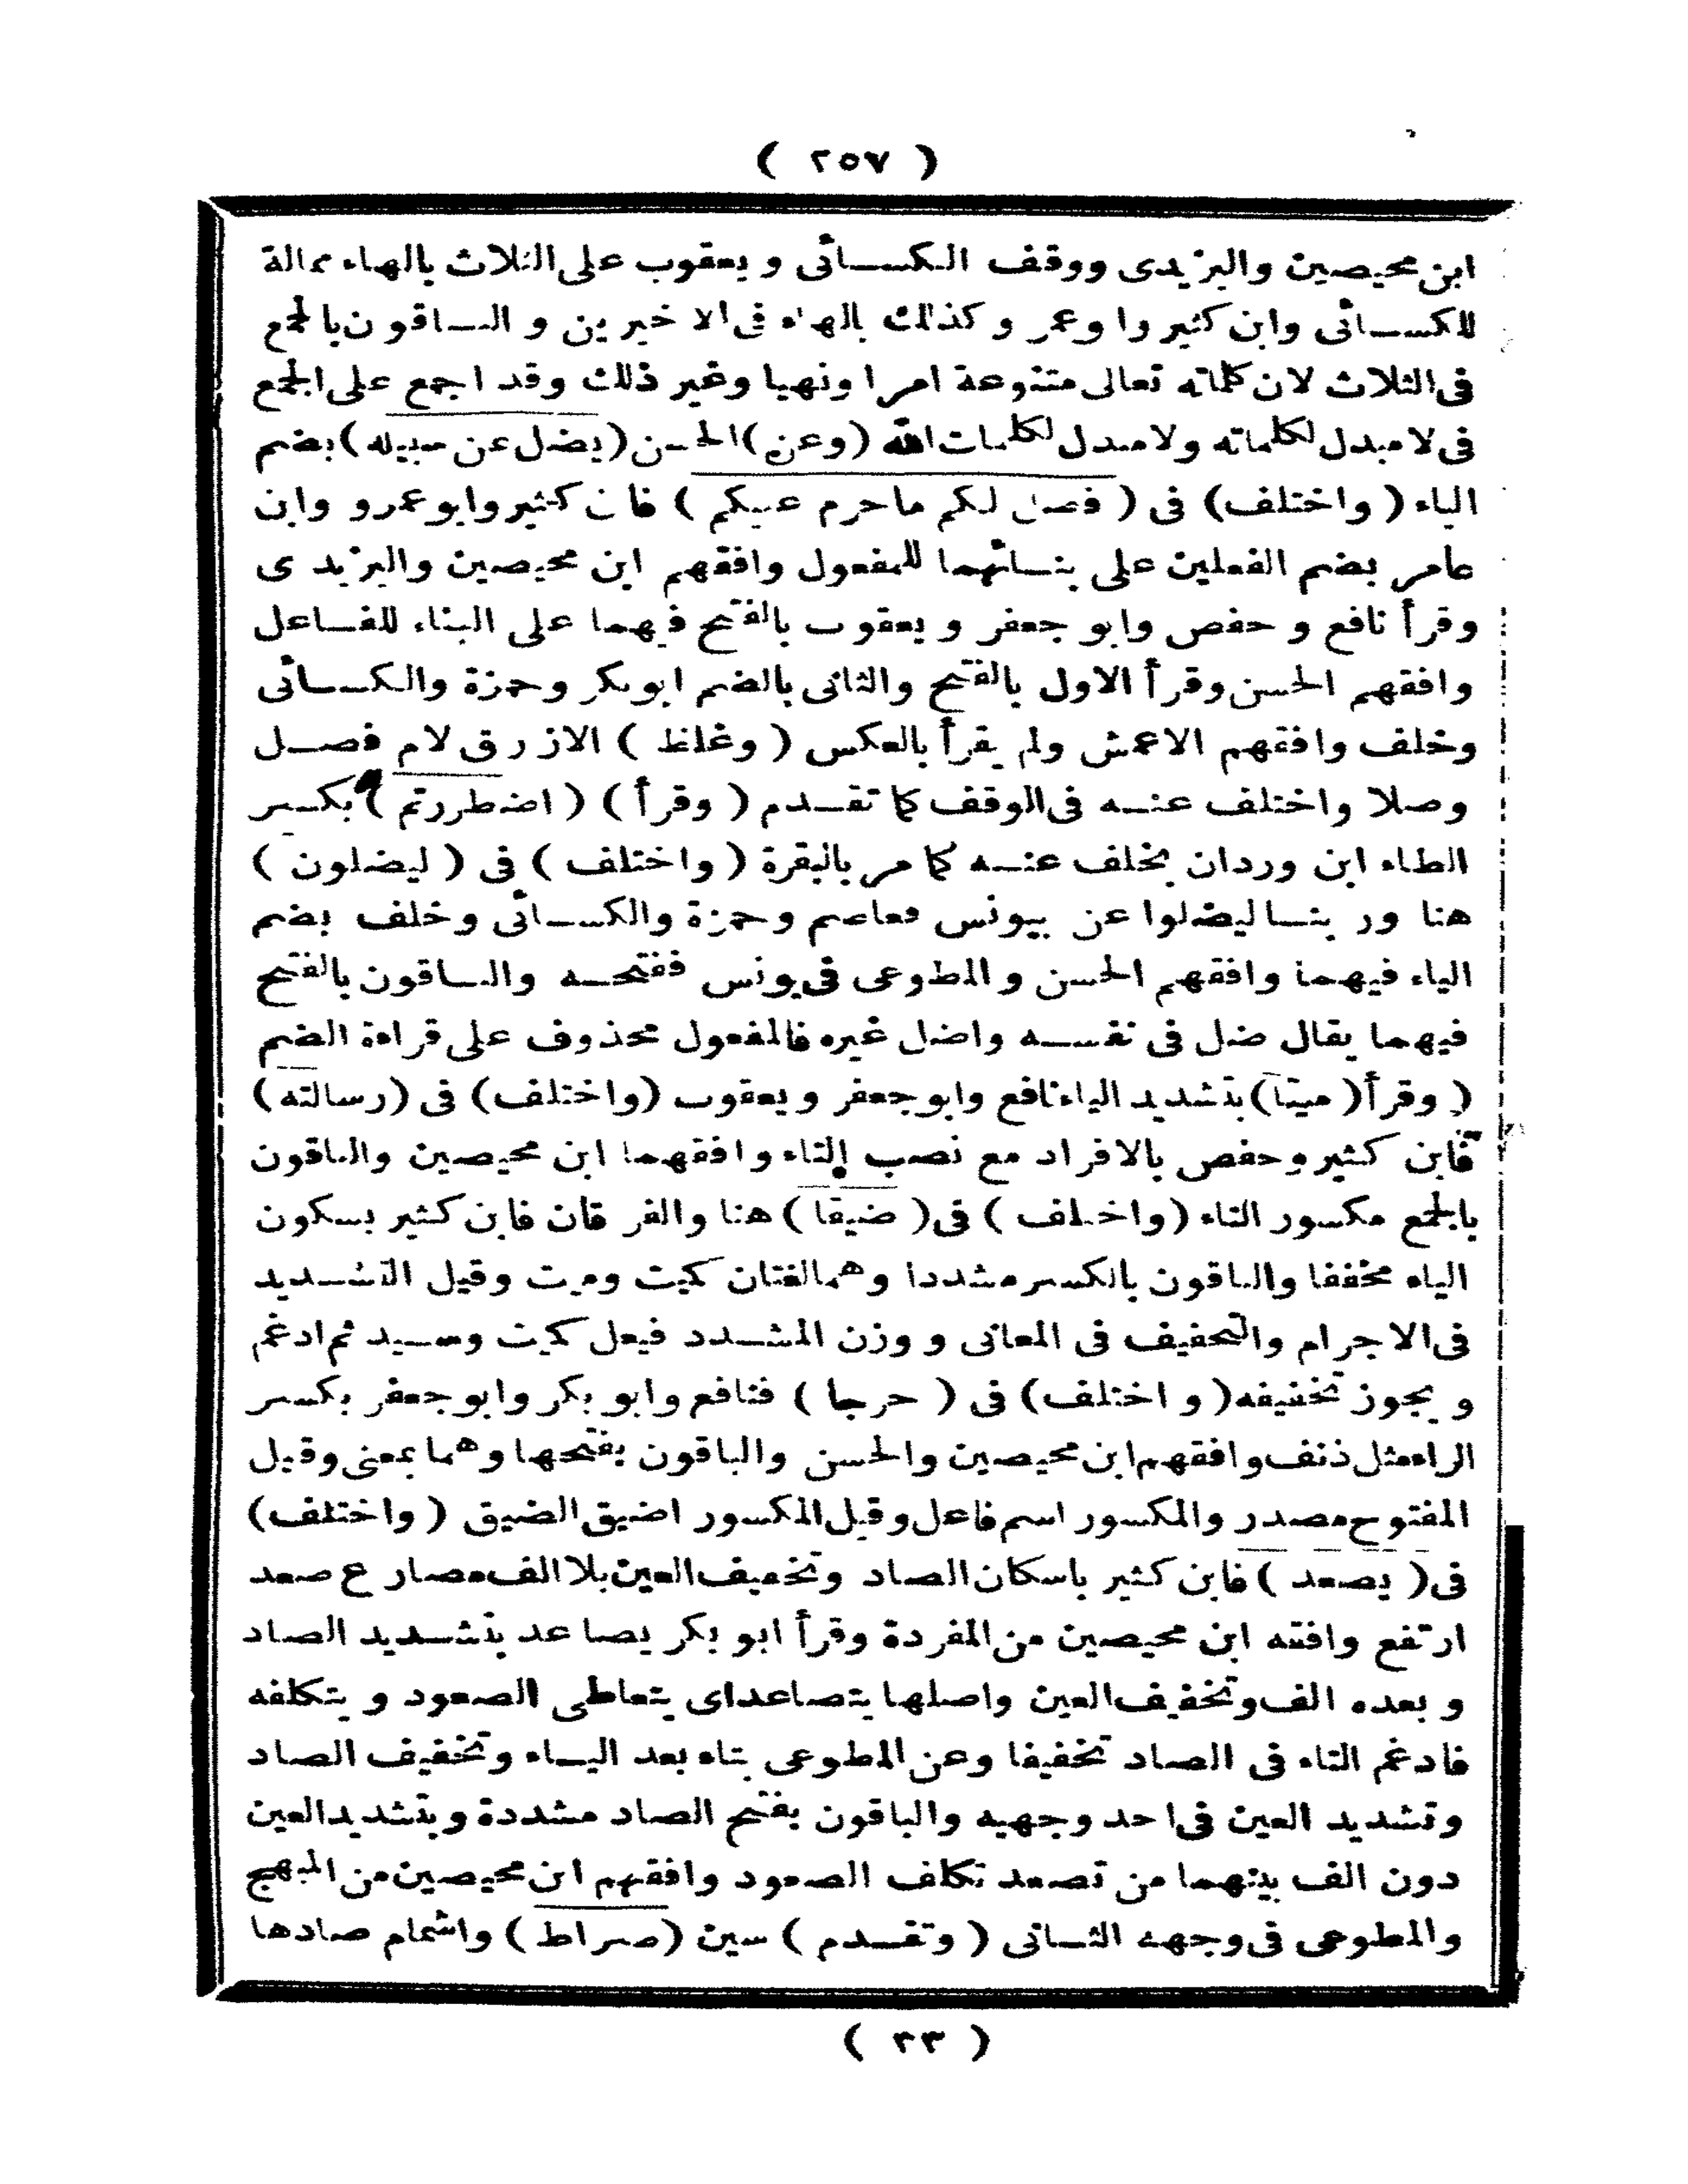 ( ٢٥٧ )
ابن محيصين واليزيدى ووقف الكسائى و يعقوب على الثلاث بالهاء ممالة
للكسائى وابن كثير وا وعمر و كذلك بالهاء فى الا خيرين و الباقون بالجمع
فى الثلاث لان كلماته تعالى متنوعة امرا ونهيا وغير ذلك وقد اجمع على الجمع
فى لا مبدل لكلماته ولا مبدل لكلمات الله (وعن) الحسن (يضل عن سبيله) بضم
الياء ( واختلف) فى ( فصل لكم ماحرم عليكم ) فابن كثير وابو عمرو وابن
عامر بضم الفعلين على بنائهما للمفعول وافقهم ابن محيصين واليزيد ى
وقرأ نافع و حفص وابو جعفر و يعقوب بالفتح فيهما على البناء للفاعل
وافقهم الحسن وقرأ الاول بالفتح والثانى بالضم ابوبكر وحمزة والكسائى
وخلف وافقهم الاعمش ولم يقرأ بالعكس ( وغلظ ) الازرق لام فصل
وصلا واختلف عنه فى الوقف كما تقدم ( وقرأ ) ( اضطررتم ) بكسر
الطاء ابن وردان بخلف عنه كما مر بالبقرة ( واختلف ) فى ( ليضلون )
هنا ور بنا ليضلوا عن بيونس فعاصم وحمزة والكسائى وخلف بضم
الياء فيهما وافقهم الحسن والمطوعى فى يونس ففتحه والباقون بالفتح
فيهما يقال ضل فى نفسه واضل غيره فالمفعول محذوف على قراءة الضم
( وقرأ ( ميتا) بتشديد الياء نافع وابو جعفر و يعقوب (واختلف) فى (رسالته)
فابن كثير وحفص بالافراد مع نصب التاء وافقهما ابن محيصين والباقون
بالجمع مكسور التاء (واختلف ) فى ( ضيقا ) هنا والفر قان فابن كثير بسكون
الياء مخففا والباقون بالكسر مشددا وهما لغتان كميت وميت وقيل التشديد
فى الاجرام والتخفيف فى المعانى و وزن المشدد فيعل كميت وسيد ثم ادغم
و يجوز تخفيفه ( و اختلف) فى ( حرجا ) فنافع وابو بكر وابو جعفر بكسر
الراء مثل دنف وافقهم ابن محيصين والحسن والباقون بفتحها وهما بمعنى وقيل
المفتوح مصدر والمكسور اسم فاعل وقيل المكسور اضيق الضيق ( واختلف)
فى ( يصعد ) فابن كثير باسكان الصاد وتخفيف العين بلا الف مضارع صعد
ارتفع وافقه ابن محيصين من المفردة وقرأ ابو بكر يصاعد بتشديد الصاد
و بعده الف وتخفيف العين واصلها يتصاعد اى يتعاطى الصعود و يتكلفه
فادغم التاء فى الصاد تخفيفا وعن المطوعى بتاء بعد الياء وتخفيف الصاد
وتشديد العين فى احد وجهيه والباقون بفتح الصاد مشددة وبتشديد العين
دون الف بينهما من تصعد تكلف الصعود وافقهم ابن محيصين من المبهج
والمطوعى فى وجهه الثانى ( وتقدم ) سين (صراط ) واشمام صادها
( ٣٣ )